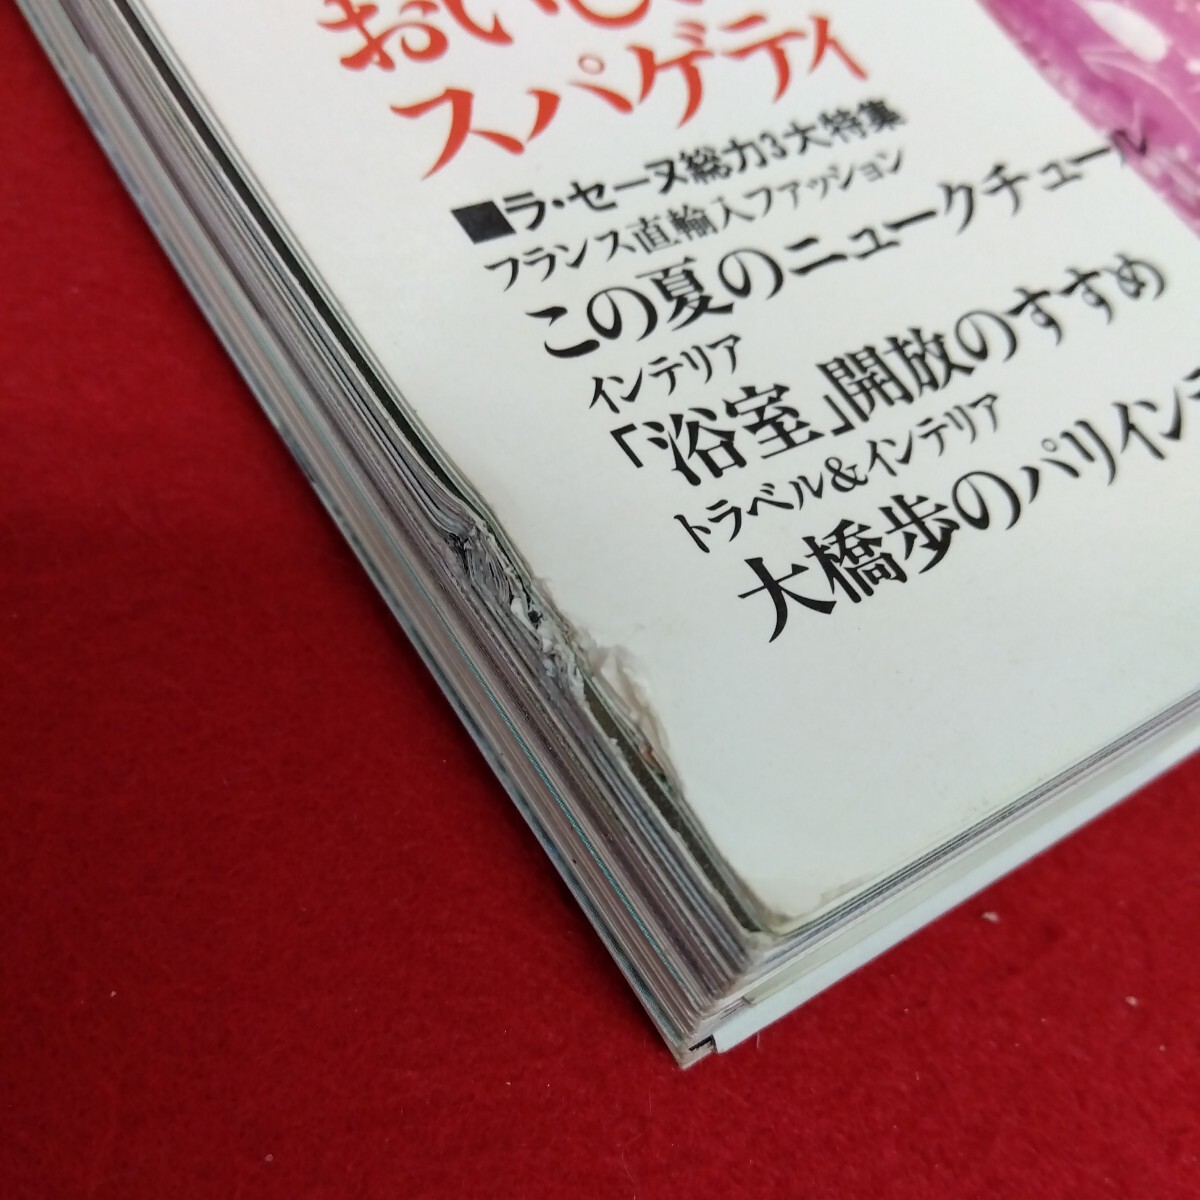 おいし
スパゲティ
■ラ・セーヌ総力3大特集
フランス直輸入ファッション
この夏のニュークチュール
インテリア
「浴室」開放のすすめ
トラベル&インテリア
大橋歩のパリインテ